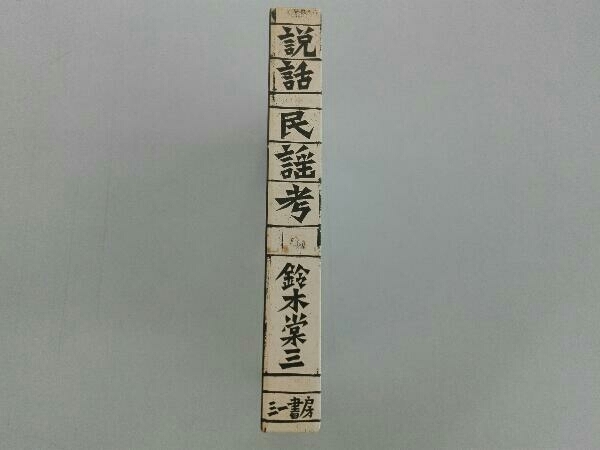 説話
民謡考
鈴木棠三
三一書房